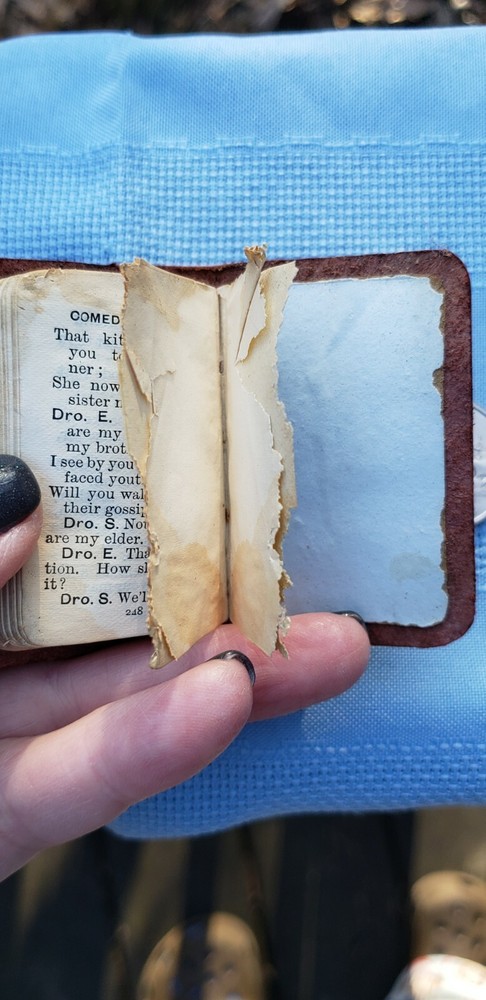 COMED
That kit
you to
ner;
She now
sister n
Dro. E.
are my
my brot
I see by you
faced yout
Will you wal
their gossip
Dro. S. No
are my elder.
Dro. E. Tha
tion. How sl
it?
Dro. S. We'l
248